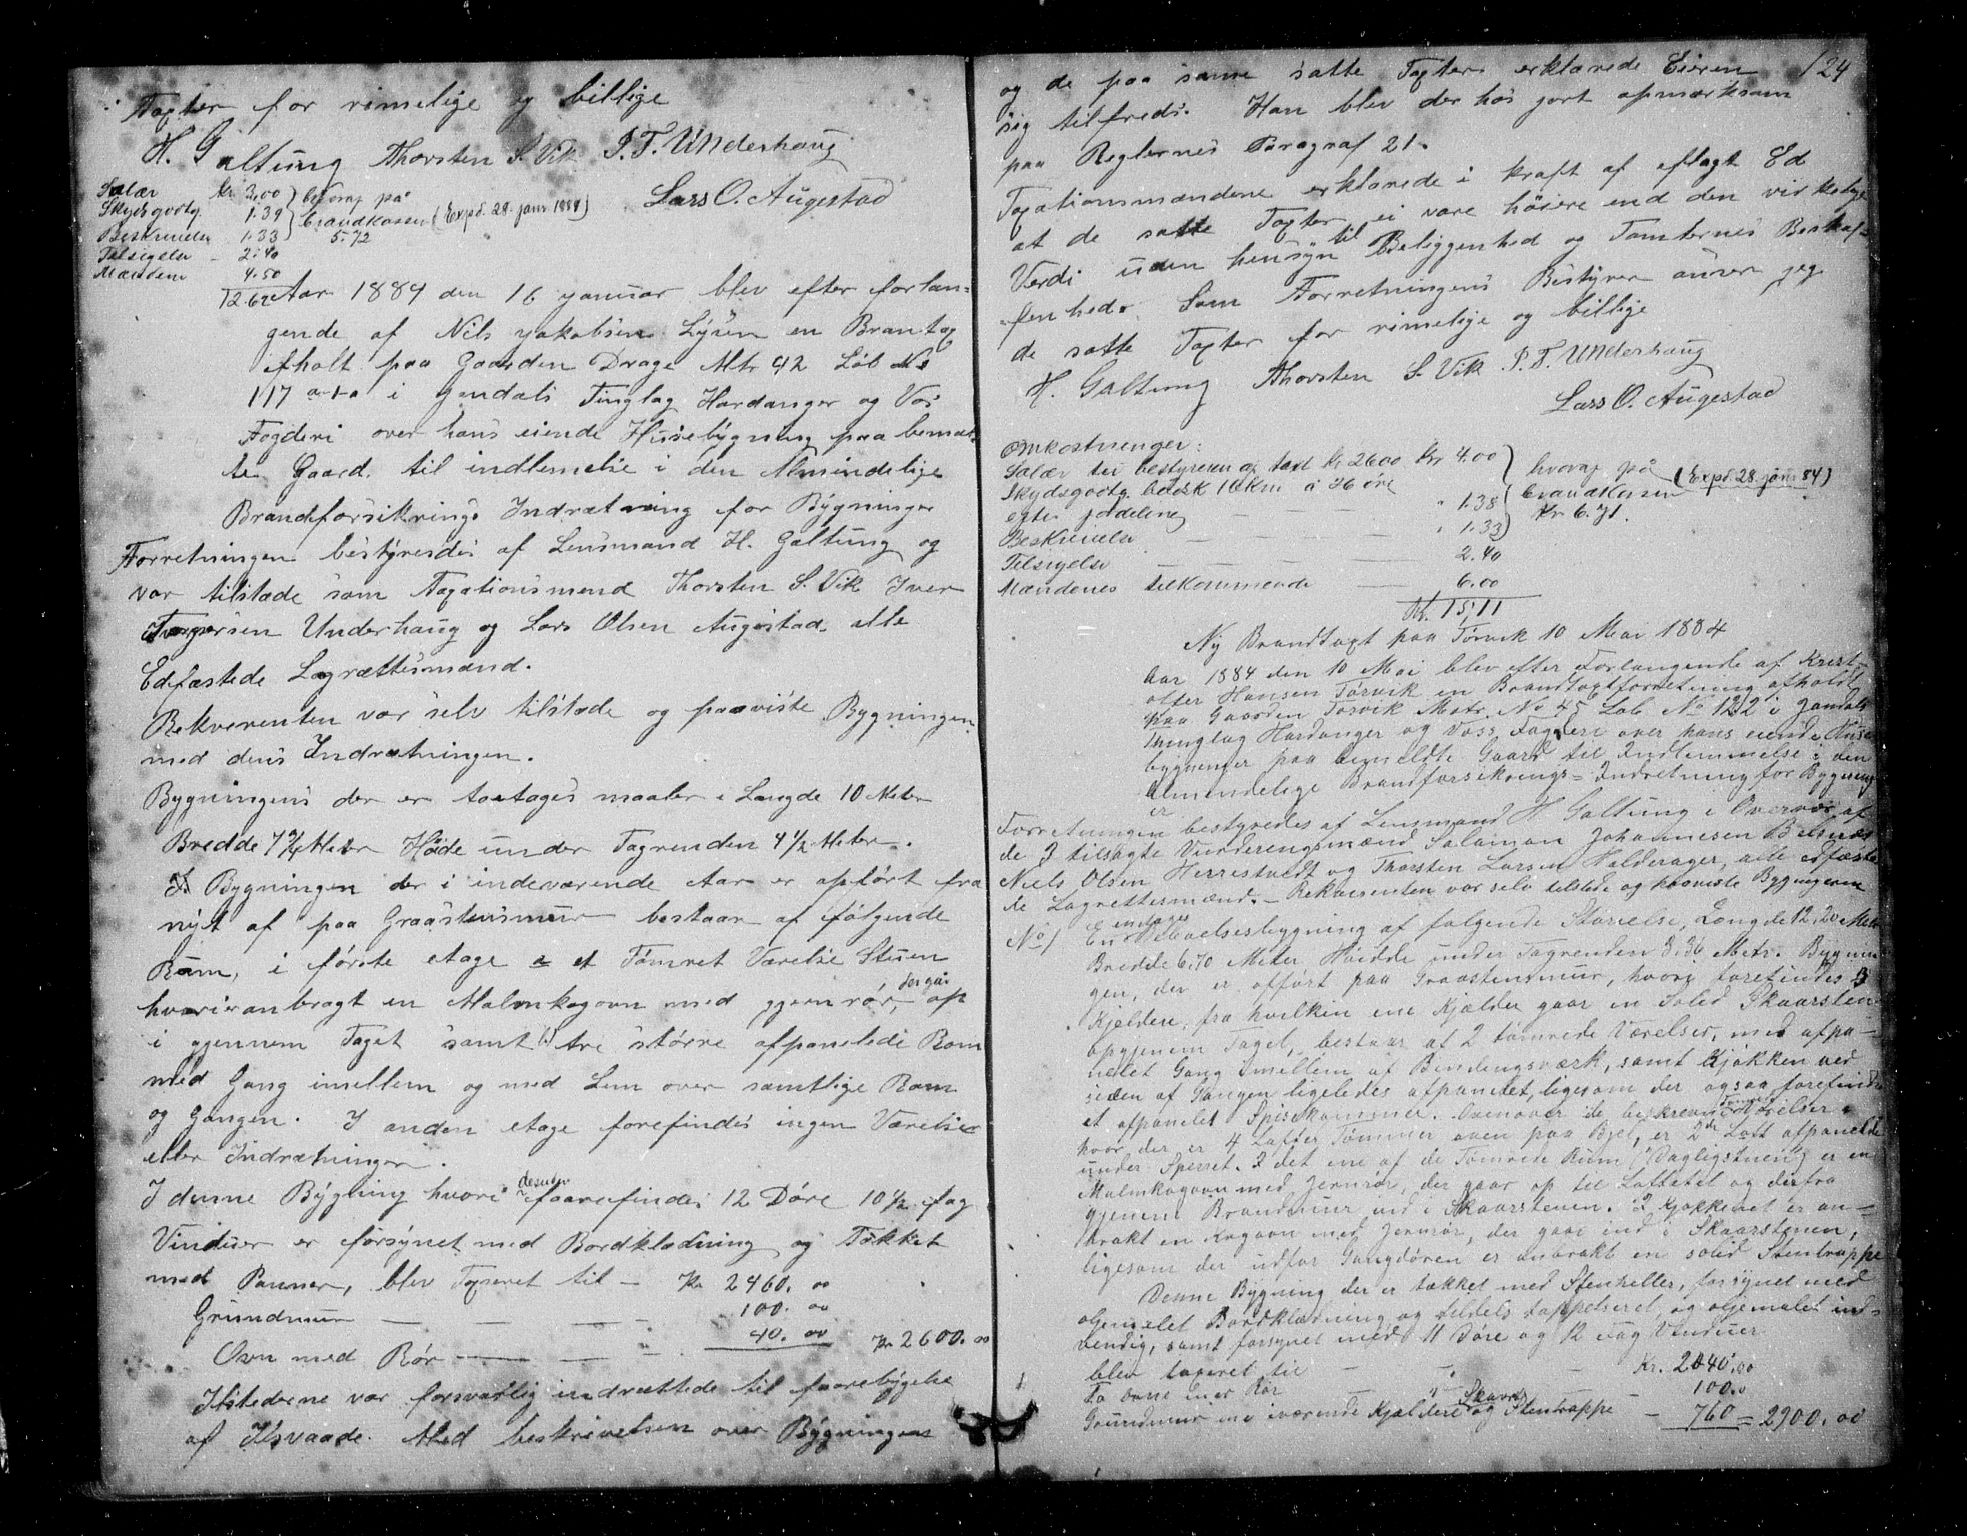 Taxter for rimelige og billige
H. Galtung Thorsten S. Vik I. T. Underhaug
Lars O. Augestad
Salær kr. 3,00 hvoraf på
Skydsgodtg 1.39 brandkassen (Expd. 28. janr 1884)
Beskrivelse 1.33 5.72
Tilsigelse - 2.40
Mændene 4.50
12.62
Aar 1884 den 16 januar blev efter forlan-
gende af Nils Jakobsen Lysen en Brantag
afholt paa Gaarden Drage Mtr 42 Løb No
117 a+a i Jondals Tinglag Hardanger og Vos
Fogderi over hans eiende Husebygning paa bemæl
te Gaard til indlemelse i den Almindelige
Brandforsikrings Indrætning for Bygninger
Forretningen bestyredes af Lensmand H. Galtung og
var tilstæde som Taxationsmend Thorsten S. Vik Iver
Torgersen Underhaug og Lars Olsen Augestad alle
Edfæstede Lagrættesmænd.
Rekverenten var selv tilstæde og paaviste Bygningen
med dens Indrætningen.
Bygningens der er toetages maaler i Længde 10 Meter
Bredde 7 Meter Høide under Tagrenden 4 1/2 Meter.
Bygningen der i indeværende Aar er opført fra
nyt af paa Graastensmur bestaar af følgende
Rum, i første etage et Tømret Værelse Stuen
hvori er anbragt en Malmkagovn med gjernrør, der går op
i gjennem Taget samt tre større afpanelede Rom
med Gang imellem og med Lem over samtlige Rom
og Gangen. I anden etage forefindes ingen Værelse
eller Indrætninger.
I denne Bygning hvori desuden faarefindes 12 Døre 10 1/2 fag
Vinduer er forsynet med Bordklædning og Tækket
med Panner, blev Taxeret til - Kr 2460.00
Grundmuren - - - " 100.00
Ovn med Rør - - " 40.00 Kr 2600.00
Ildstederne var forsvarlig indrættede til faarebygelse
af Ildsvaade. Med beskrivelsen over Bygningens
124
og de paa same satte Taxter erklærede Eieren
sig tilfreds. Han blev der hos gort opmærksom
paa Reglernes Paragraf 21.
Taxationsmændene erklærede i kraft af eflagt Ed
at de satte Taxter ei vare høiere end den virkelige
Verdi uden hensyn til Beliggenhed og Tomternes Beskaf-
fenhed. Som Forretningens Bestyrer anser jeg
de satte Taxter for rimelige og billige
H. Galtung Thorsten S. Vik I. T. Underhaug
Lars O. Augestad
Omkostninger:
Salær til bestyreren af taxt kr 2600 Kr 4.00 hvoraf på (Expd. 28. janr 84)
Skydsgodtg baade 16 km a 36 øre brandkassen
efter fordeling - - - " 1.38 Kr 6.71.
Beskrivelse - - - " 1.33
Tilsigelse - - - 2.40
Mændenes tilkommende - 6.00
Kr. 15,11
Ny Brandtaxt paa Tørvik 10 Mai 1884
Aar 1884 den 10 Mai blev efter Forlangende af Krist-
offer Hansen Tørvik en Brandtaxtforretning afholdt
paa Gaarden Torvik Matr. No 45 Løb No 122 i Jondals
Thinglag Hardanger og Voss Fogderi over hans eiende Huse
bygninger paa bemeldte Gaard til Indlemmelse i den
almindelige Brandforsikrings-Indretning for Bygning
er
Forretningen bestyredes af Lensmand H Galtung i Overvær af
de 3 tilsagte Vurderingsmænd Salamon Johannesen Belsnæs
Niels Olsen Herrestvedt og Thorsten Larsen Halderager, alle edfæste
de Lagrettesmænd. - Rekvirenten var selv tilstede og paaviste Bygningerne
No 1 En enetages Vaaelsesbygning af følgende Størrelse, Længde 12,20 Meter
Bredde 6.70 Meter Høidde under Tagrenden 3.36 Metr. Bygnin
gen, der er opført paa Graastensmur, hvori forefindes 3
Kjeldere, fra hvilken ene Kjælder gaar en Solid Skaarsten
opgjenem Taget, bestaar af 2 tømrede Værelser, med afpa-
nelet Gang Imellem af Bindingsværk, samt Kjøkken ved
siden af Gangen ligeledes afpanelet, ligesom der ogsaa forefindes
et afpanelet Spisekammer. Ovenover de beskrevne Tømrede Værelser,
hvor der er 4 Lafter Tømmer oven paa Bjel, er 2de Loft afpanelde
under Sperret. I det ene af de Tømrede Rum (Dagligstuen) er en
Malmkagovn med Jernrør, der gaar op til Loftetet og derfra
gjenem Brandmur ind i Skaarstenen. I Kjøkkenet er an-
brakt en Kogovn med Jernrør, der gaar ind i Skaarstenen,
ligesom der udfor Gangdøren er anbrakt en solid Stentrappe
Denne Bygning der er tækket med Stenheller, forsynet med
oljemalet Bordklædning og tildels tappetseret og oljemalet ind-
vendig, samt forsynet med 11 Døre og 12 fag Vinduer
blev taxeret til - - Kr. 2040.00
To Ovne Eller Rør " - 100.0
Grundmur med iværende Kjældere Skarst. og Stentrappe - 760 = 2900.00